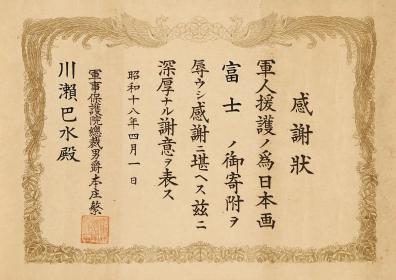 感謝狀
軍人援護ノ為日本画
富士ノ御寄附ヲ
辱ウシ感謝ニ堪ヘス茲ニ
深厚ナル謝意ヲ表ス
昭和十八年四月一日
軍事保護院總裁男爵本庄繁
川瀬巴水殿